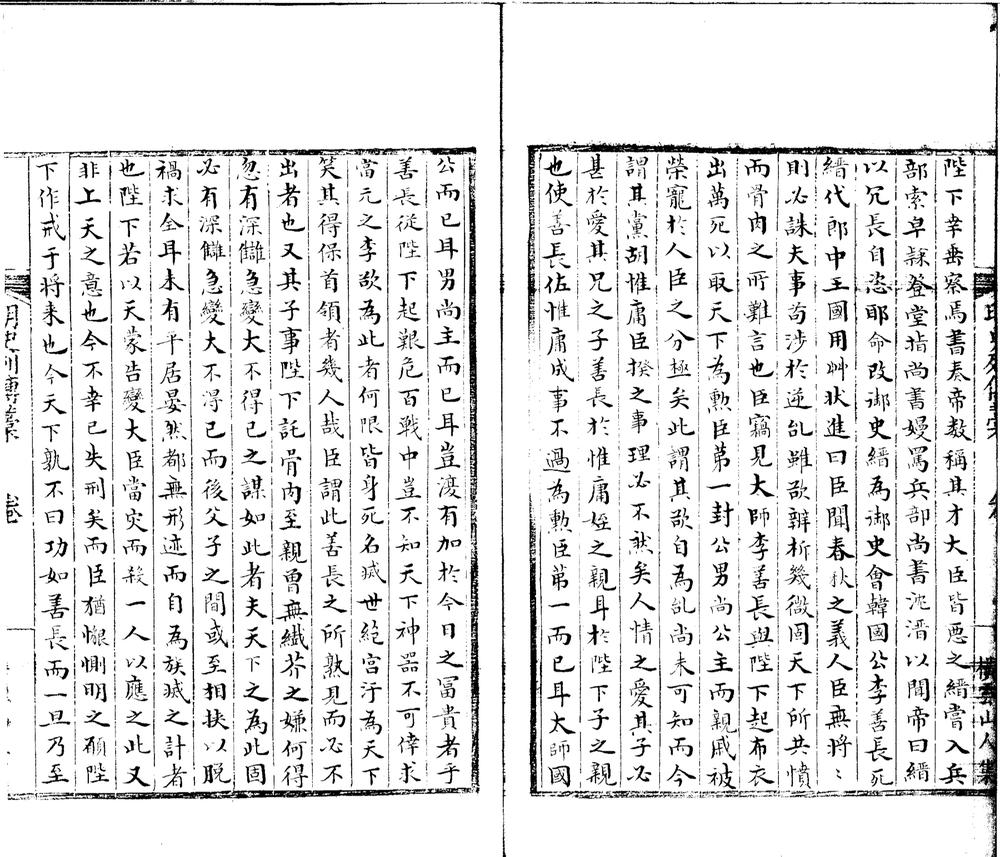 陛下幸垂察焉書奏帝數稱其才大臣皆惡之縉嘗入兵
部索皁隷登堂指尚書嫚罵兵部尚書沈溍以聞帝曰縉
以冗長自恣耶命改御史縉為御史會韓國公李善長死
縉代郎中王國用艸狀進曰臣聞春秋之義人臣無將〻
則必誅夫事苟涉於逆乱雖欲辯析幾微固天下所共憤
而骨肉之所難言也臣竊見大師李善長與陛下起布衣
出萬死以取天下為勲臣苐一封公男尚公主而親戚被
榮寵於人臣之分極矣此謂其欲自為乱尚未可知而今
謂其黨胡惟庸臣揆之事理必不然矣人情之愛其子必
甚於愛其兄之子善長於惟庸姪之親耳於陛下子之親
也使善長佐惟庸成事不過為勲臣苐一而已耳太師國
公而已耳男尚主而已耳豈復有加於今日之富貴者乎
善長從陛下起艱危百戰中豈不知天下神器不可倖求
當元之季欲為此者何限皆身死名滅世絕宮汙為天下
笑其得保首領者幾人哉臣謂此善長之所熟見而必不
出者也又其子事陛下託骨肉至親曾無纎芥之嫌何得
忽有深讎急變大不得已之謀如此者夫天下之為此固
必有深讎急變大不得已而後父子之間或至相挟以脫
禍求全耳未有平居晏然都無形迹而自為族滅之計者
也陛下若以天象告變大臣當灾而殺一人以應之此又
非上天之意也今不幸已失刑矣而臣猶懇惻明之願陛
下作戒于将来也今天下孰不曰功如善長而一旦乃至
明史列傳藁
卷
橫雲山人集